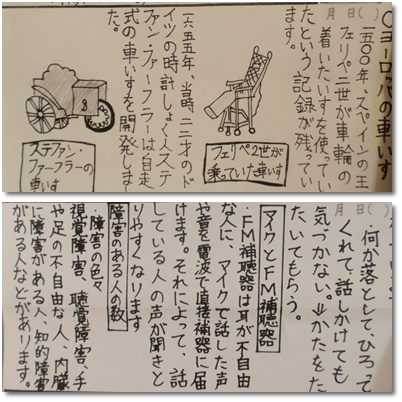 月 日( )
○ヨーロッパの車いす
一五〇〇年、スペインの王
フェリペ二世が車輪の
着いたいすを使ってい
たという記録が残ってい
ます。
フェリペ2世が
乗っていた車いす
一六五五年、当時、二二才のド
イツの時計しょく人ステ
ファン・ファーフラーは自走
式の車いすを開発しま
た。
ステファン・
ファーフラーの
車いす
月 日( )
何が落として、ひろって
くれて、話しかけても
気づかない。⇒かたをた
たいてもらう。
マイクとFM補聴器
FM補聴器は耳が不自由
な人に、マイクで話した声
や音を電波で直接補器に届
けます。それによって、話
している人の声が聞きと
りやすくなります
障害のある人の数
・障害の色々
視覚障害、聴覚障害、手
や足の不自由な人、内臓
に障害がある人、知的障害
がある人などがあります。